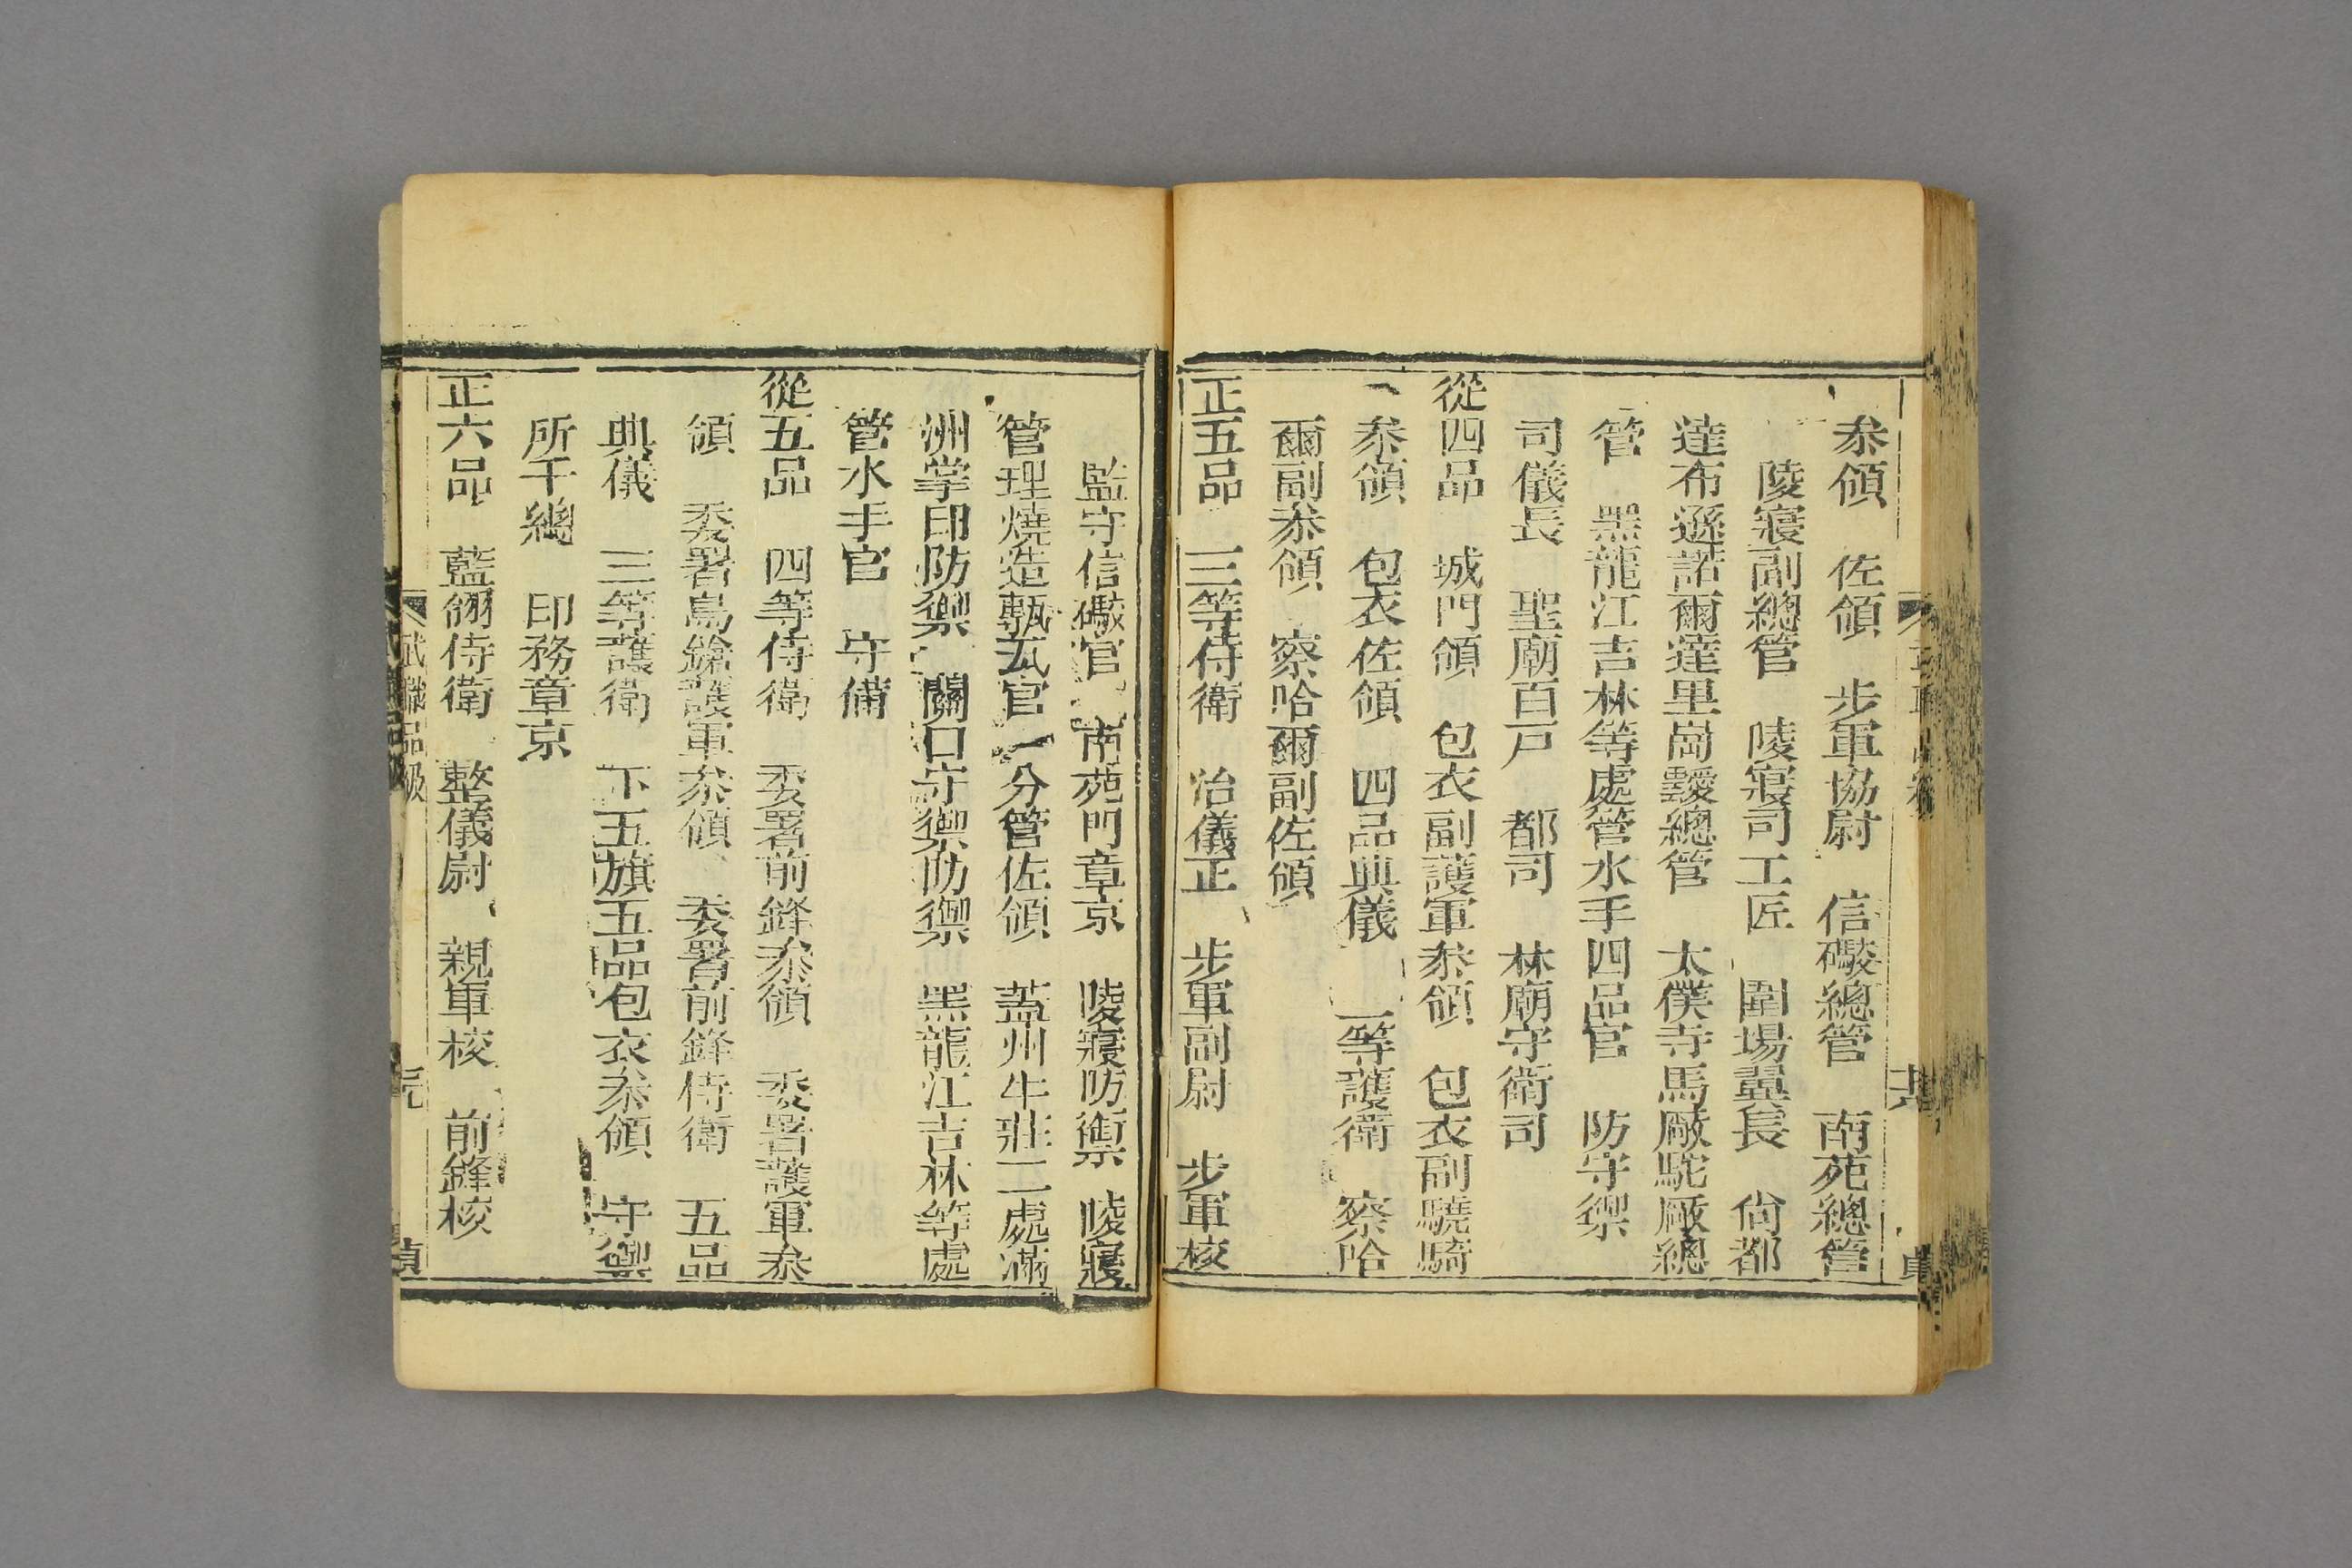 叅領　佐領　步軍協尉　信礮總管　南苑總管
陵寢副總管　陵寢司工匠　圍場翼長　尙都
達布遜諾爾達里崗靉總管　太僕寺馬厰駝厰總
管　黑龍江吉林等處管水手四品官　防守禦
司儀長　聖廟百戸　都司　林廟守衛司
從四品　城門領　包衣副護軍叅領　包衣副驍騎
叅領　包衣佐領　四品典儀　二等護衛　察哈
爾副叅領　察哈爾副佐領
正五品　三等侍衛　治儀正　步軍副尉　步軍校
監守信礮官　南苑門章京　陵寢防禦　陵寢
管理燒造甎瓦官　分管佐領　蓋州牛莊二處滿
洲掌印防禦　關口守禦防禦　黑龍江吉林等處
管水手官　守備
從五品　四等侍衛　委署前鋒叅領　委署護軍叅
領　委署鳥鎗護軍叅領　委署前鋒侍衛　五品
典儀　三等護衛　下五旗五品包衣叅領　守禦
所千總　印務章京
正六品　藍翎侍衛　整儀尉　親軍校　前鋒校
武職品級